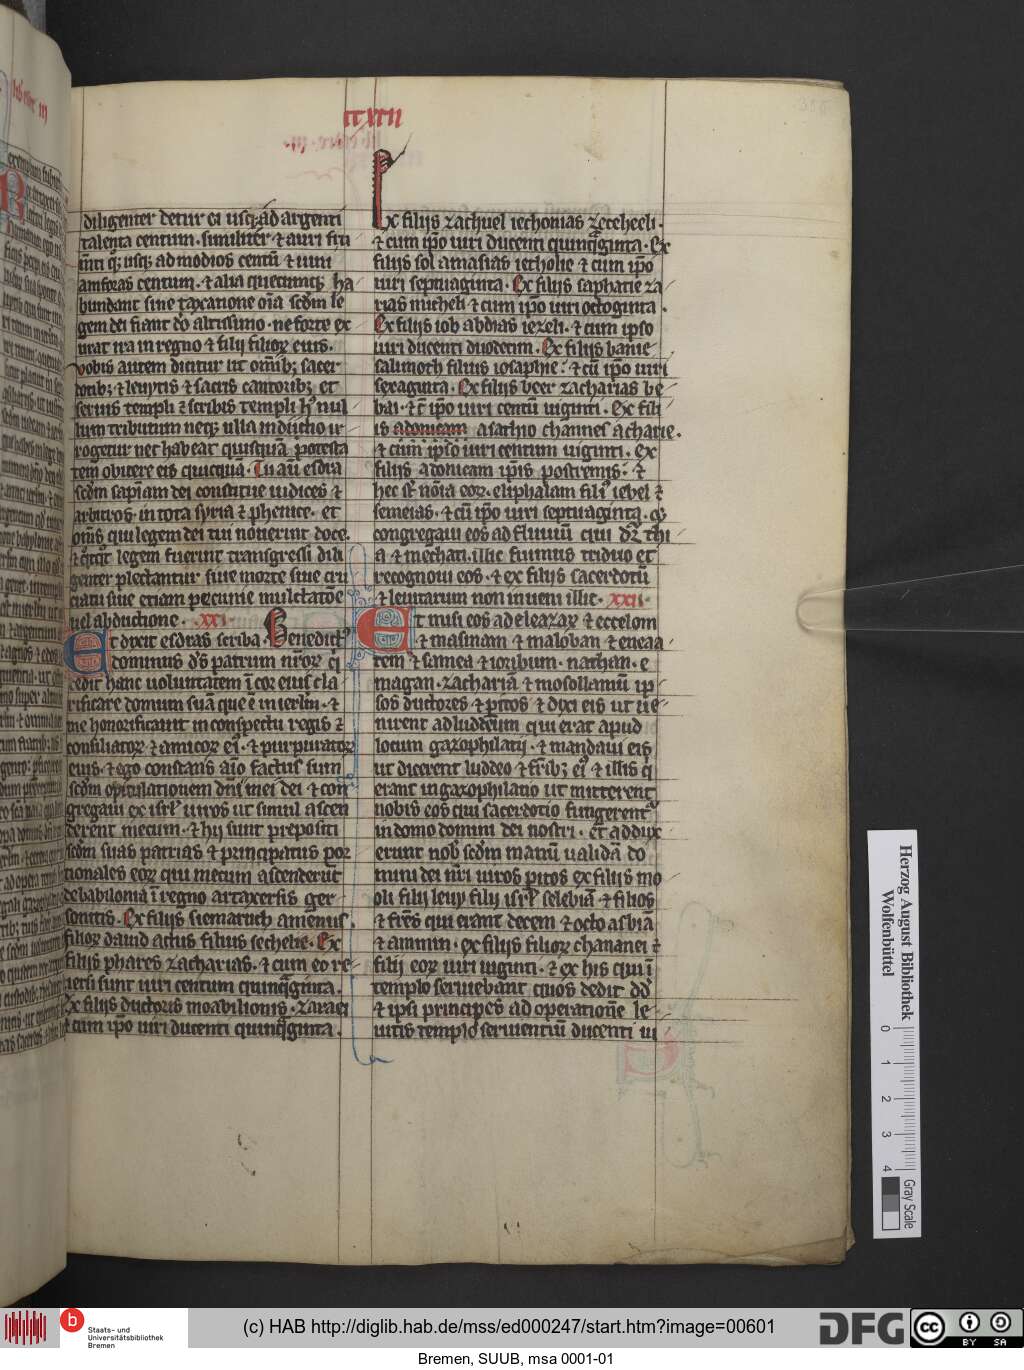 diligenter detur ei usq; ad argenti
talenta centum · similiter ⁊ auri fru
mti q; usq; ad modios centū ⁊ uini
amforas centum · ⁊ alia quecumq; ha
bundant sine taxatione oīa scdm le
gem dei fiant dō altissimo · ne forte ex
urat ira in regno ⁊ filij filioꝝ eius ·
vobis autem dicitur ut omib; sacer
dotib; ⁊ leuytis ⁊ sacris cantorib; et
seruis templi ⁊ scribis templi hͥ nul
lum tributum neq; ulla indictio ir
rogetur nec habeat quisquā potesta
tem obicere eis quicquā · Tu aū esdra
scdm sapiam dei constitue iudices ⁊
arbitros · in tota syria ⁊ phenice · et
oms qui legem dei tui nouerint doce ·
⁊ qtqt legem fuerint transgressi dili
genter plectantur siue morte siue cru
ciatu siue etiam pecunie mulctatōe
uel abductione · xxi ·
Et dixit esdras scriba · Benedictꝰ
dominus ds patrum nroꝝ qi
dedit hanc uoluntatem ī cor eius cla
rificare domum suā que ē in ierlm · ⁊
me honorificauit in conspectu regis ⁊
consiliatoꝝ ⁊ amicoꝝ eiꝰ · ⁊ purpuratoꝝ
eius · ⁊ ego constans aīo factus sum
scdm opitulationem dni mei dei ⁊ con
gregaui ex isrl uiros ut simul ascen
derent mecum · ⁊ hij sunt prepositi
scdm suas patrias ⁊ principatus por
tionales eoꝝ qui mecum ascenderūt
de babilonia ī regno artaxersis ·
Ex filijs siemaruth amenus ·
filioꝝ dauid actus filius sechelie · Ex
filijs phares zacharias · ⁊ cum eo re
uersi sunt uiri centum quinqginta ·
Ex filijs ductoris moabilionis · zaraei
⁊ cum ipo uiri ducenti quinqginta ·
ccxxii
Ex filijs zachuel iechonias zecheeli ·
⁊ cum ipo uiri ducenti quinqginta · Ex
filijs sol amasias iecholie ⁊ cum ipo
uiri septuaginta · Ex filijs saphatie za
rias micheli ⁊ cum ipo uiri octoginta ·
Ex filijs iob abdias iezeli · ⁊ cum ipso
uiri ducenti duodecim · Ex filijs banie
salimoth filius iosaphie · ⁊ cū ipo uiri
sexaginta · Ex filijs beer zacharias be
bai · ⁊ c ipo uiri centū uiginti · Ex fili
is adonicam asathio channes acharie ·
⁊ cum ipso uiri centum uiginti · Ex
filijs adonicam ipis postremis · ⁊
hec st noīa eoꝝ · eliphalam filiꝰ iebel ⁊
semeias · ⁊ cū ipo uiri septuaginta · ⁊
congregaui eos ad fluuiū qui dr thi
a ⁊ mechati · illic fuimus triduo et
recognoui eos · ⁊ ex filijs sacerdotū
⁊ leuitarum non inueni illic · xxii ·
Et misi eos ad eleazar ⁊ eccelom
⁊ masmam ⁊ maloban ⁊ eneaa
tem ⁊ samea ⁊ ioribum · nathan · e
magan · zachariā ⁊ mosollamū ip
sos ductores ⁊ pitos ⁊ dixi eis ut ue
nirent ad luddeum qui erat apud
locum gazophilatij · ⁊ mandaui eis
ut dicerent luddeo ⁊ frib; eiꝰ ⁊ illis qi
erant in gazophilatio ut mitterent
nobis eos qui sacerdotio fungerentꝰ
in domo domini dei nostri · et addux
erunt nob scdm manū ualidā do
mini dei nri uiros pitos ex filijs mo
oli filij leuy filij isrl selebiā ⁊ filios
⁊ fres qui erant decem ⁊ octo asbiā
⁊ ammin · ex filijs filioꝝ chananei ⁊
filij eoꝝ uiri uiginti · ⁊ ex his qui ī
templo seruiebant quos dedit dd
⁊ ipsi principes ad operatione le
uitis templo seruientiū ducenti ui
Herzog August Bibliothek
Wolfenbüttel
0 1 2 3 4
Gray Scale
Staats- und
Universitätsbibliothek
Bremen
(c) HAB http://diglib.hab.de/mss/ed000247/start.htm?image=00601
DFG
cc BY SA
Bremen, SUUB, msa 0001-01